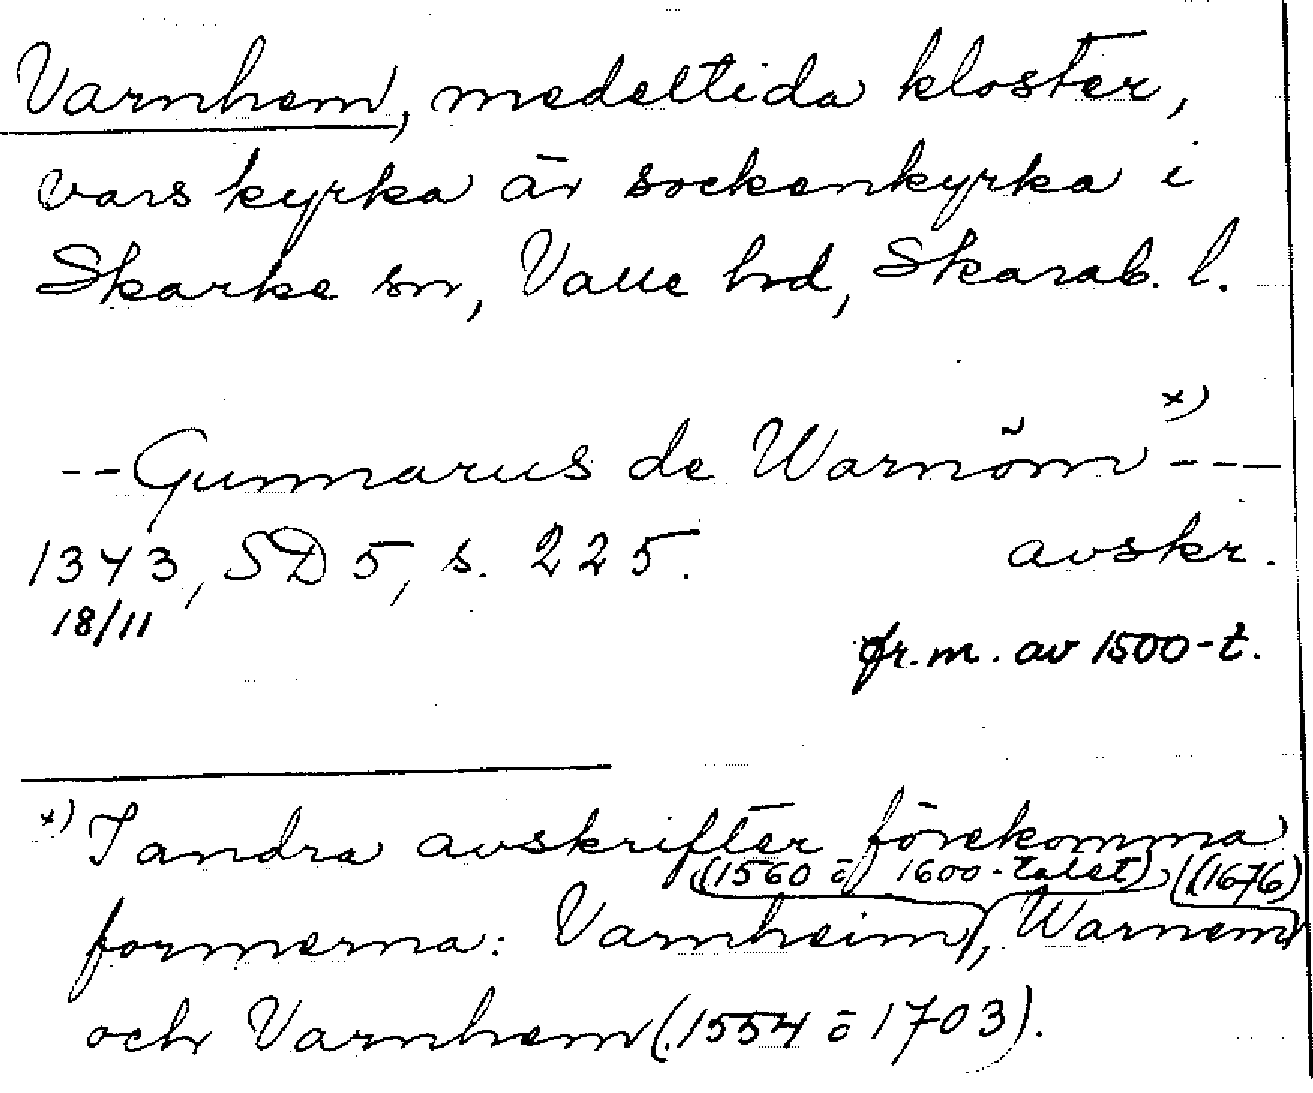 Varnhem, medeltida kloster,
vars kyrka är sockenkyrka i
Skarke sn, Valle hd, Skarab. l.
--Gunnarus de Warnöm x) ---
1343, SD 5, s. 225. avskr.
18/11
fr. m. av 1500-t.
x) I andra avskrifter förekomma
(1560 o 1600-talet) (1676)
formerna: Varnheim, Warnem
och Varnhem (1554 o 1703).